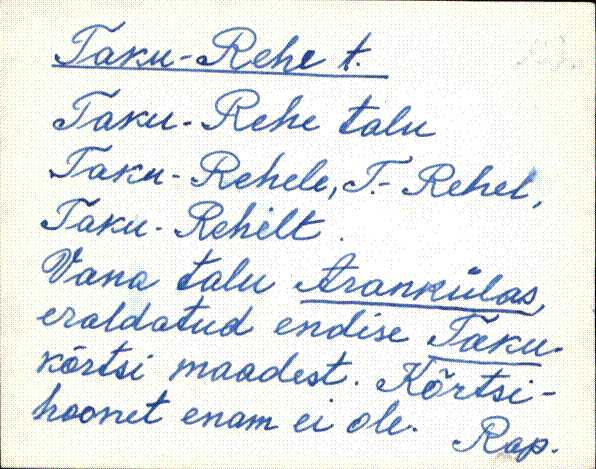 Taku-Rehe t.
Taku-Rehe talu
Taku-Rehele, T.-Rehel,
Taku-Rehelt.
Vana talu Arankülas,
eraldatud endise Taku-
kõrtsi maadest. Kõrtsi-
hoonet enam ei ole.
Rap.